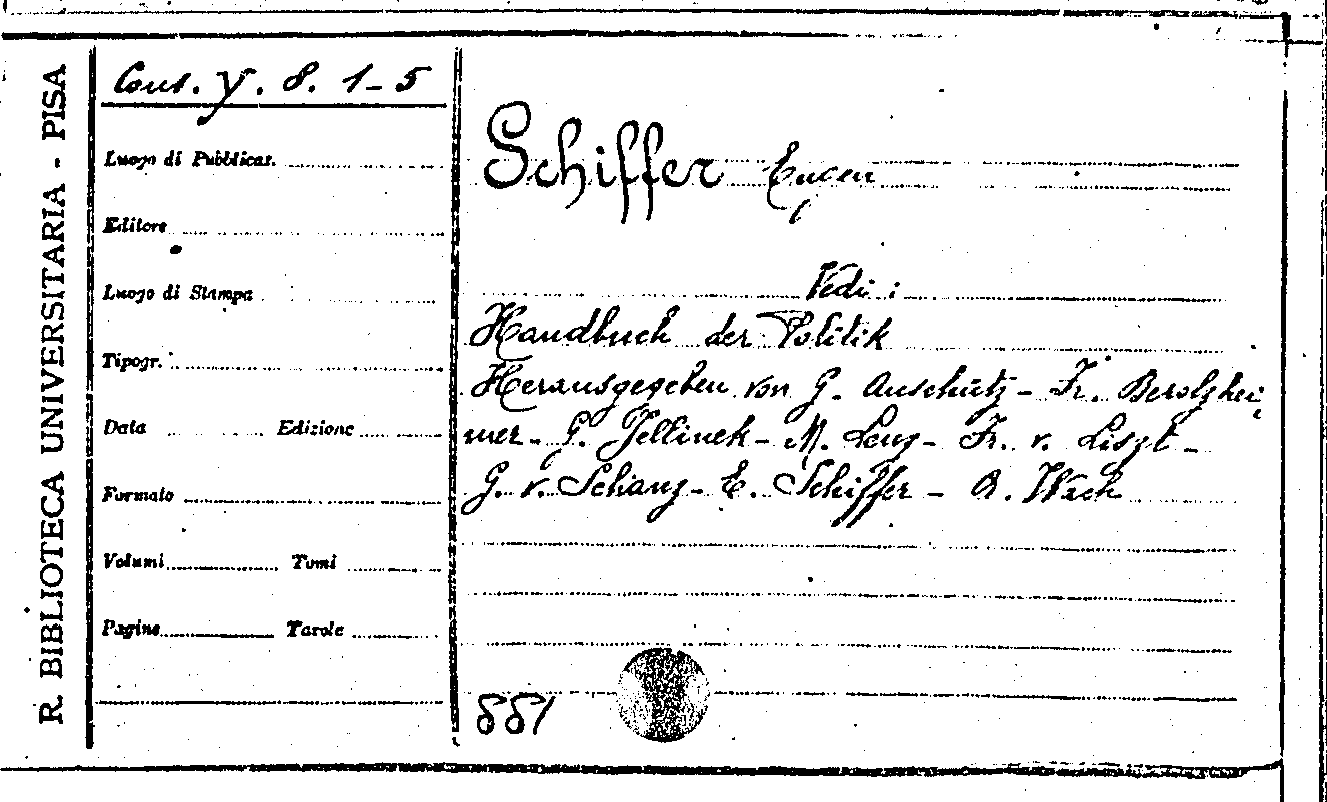 R. BIBLIOTECA UNIVERSITARIA - PISA
Cons. Y. 8. 1-5
Luogo di Pubblicaz.
Editore
Luogo di Stampa
Tipogr.
Data Edizione
Formato
Volumi Tomi
Pagine Tavole
Schiffer Eugen
Vedi:
Handbuch der Politik
Herausgegeben von G. Anschütz - Fr. Berolzhei
mer - G. Jellinek - M. Lenz - Fr. v. Liszt -
G. v. Schanz - E. Schiffer - A. Wach
881